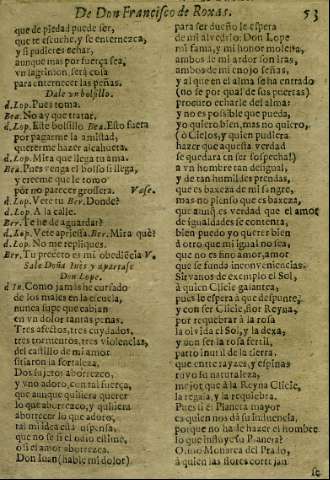 De Don Francisco de Roxas. 53
que de piedad puede ser,
que te escuche, y se enternezca,
y si pudieres echar,
aunque mas por fuerça sea,
vn lagrimon, será cosa
para enternecer las peñas.
Dale vn bolsillo.
d. Lop. Pues toma.
Bea. No ay que tratar.
d. Lop. Este bolsillo. Bea. Esto fuera
por pagarme la amistad,
quererme hazer alcahueta.
d. Lop. Mira que llega tu ama.
Bea. Pues venga el bolso si llega,
y creeme que le tomo
por no parecer grossera. Vase.
d. Lop. Vete tu Ber. Donde?
d. Lop. A la calle.
Ber. Te he de aguardar?
d. Lop. Vete apriessa. Ber. Mira que?
d. Lop. No me repliques.
Ber. Tu precepto es mi obediēcia V.
Sale Doña Ines y apartase
Don Lope.
d. In. Como jamás he cursado
de los males en la escuela,
nunca supe que cabian
en vn dolor tantas penas.
Tres afectos, tres cuydados,
tres tormentos, tres violencias,
del castillo de mi amor
sitiaron la fortaleza.
Dos sujetos aborrezco,
y vno adoro, con tal fuerça,
que aunque quisiera querer
lo que aborrezco, y quisiera
aborrecer lo que adoro,
tal mi idea està suspensa,
que no se si el odio estime,
ò si el amor aborrezca.
Don Iuan (hable mi dolor)
para ser dueño le espera
de mi alvedrio: Don Lope
mi fama, y mi honor molesta,
ambos de mi ardor son iras,
ambos de mi enojo señas,
y al que en el alma se ha entrado
(no se por qual de sus puertas)
procuro echarle del alma:
y no es possible que pueda,
yo quiero bien, mas no quiero,
(ò Cielos, y quien pudiera
hazer que aquesta verdad
se quedara en ser sospecha!)
à vn hombre tan desigual,
y de tan humildes prendas,
que es baxeza de mi sangre,
mas no pienso que es baxeza,
que aunq̃ es verdad que el amor
de igualdades se contenta,
bien puedo yo querer bien
à otro que mi igual no sea,
que no es fino amor, amor
que se funda inconveniencias.
Sirvanos de exemplo el Sol,
à quien Clicie galantea,
pues le espera à que despunte,
y con ser Clicie, flor Reyna,
por requebrar à la rosa
la olvida el Sol, y la dexa,
y aun ser la rosa fertil,
parto inutil de la tierra,
que entre rayez, y espinas
tuvo su naturaleza,
mejor que à la Reyna Clicie,
la regala, y la requiebra.
Pues si el Planeta mayor
es quien nos dà su influencia,
porque no ha de hazer el hombre
lo que influye su Planeta?
O, vno Monarca del Prado,
à quien las flores cortejan
se